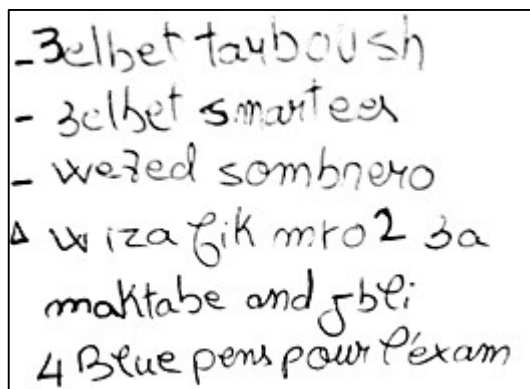 - 3elbet tarboush
- 3elbet smartees
- we7ed sombrero
Δ w iza fik mro2 3a
maktabe and jbli
4 Blue pens pour l'éxam